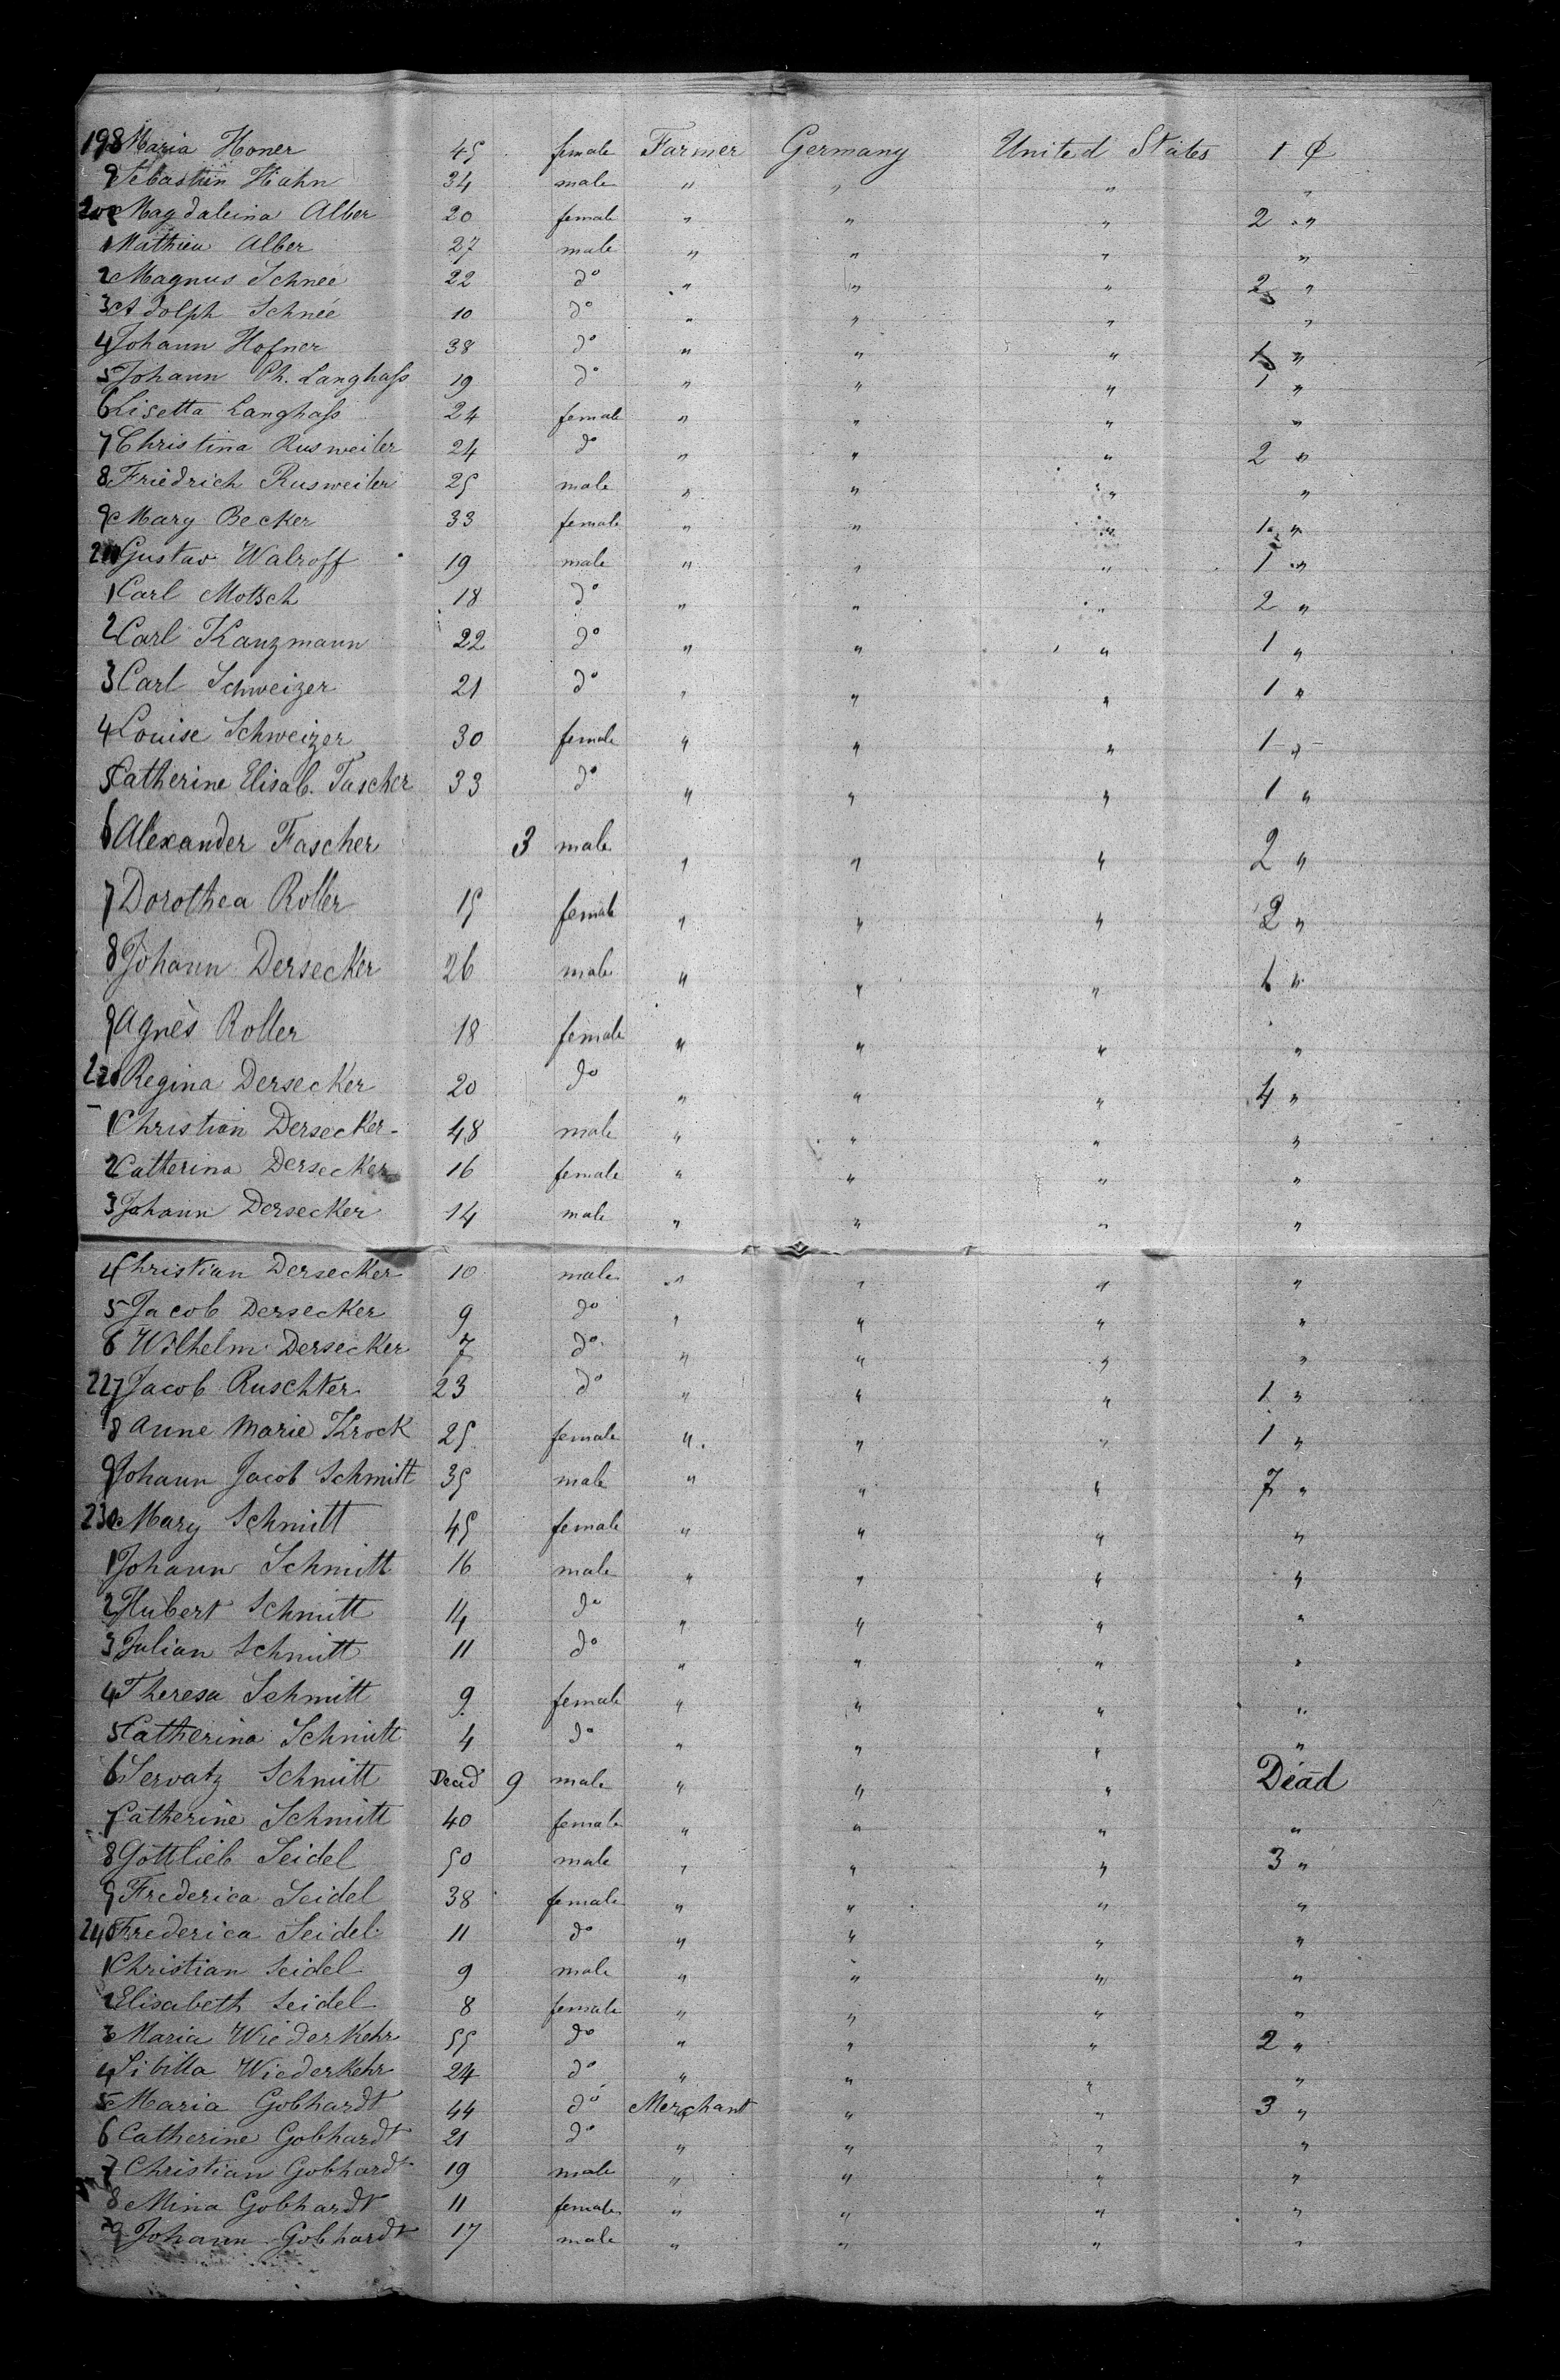 198 Maria Honer 45 female Farmer Germany United States 1 ₵
9 Sebastien Hahn 34 male " " " "
200 Magdaleina Alber 20 female " " " 2 "
1 Mathieu Alber 27 male " " " "
2 Magnus Schneé 22 do " " " 2 "
3 Adolph Schneé 10 do " " " "
4 Johann Hofner 38 do " " " 1 "
5 Johann Ph. Langhass 19 do " " " 1 "
6 Lisetta Langhass 24 female " " " "
7 Christina Rusweiler 24 do " " " 2 "
8 Friedrich Rusweiler 25 male " " " "
9 Mary Becker 33 female " " " 1 "
210 Gustav Walroff 19 male " " " 1 "
1 Carl Motsch 18 do " " " 2 "
2 Carl Kanzmann 22 do " " " 1 "
3 Carl Schweizer 21 do " " " 1 "
4 Louise Schweizer 30 female " " " 1 "
5 Catherine Elisab. Fascher 33 do " " " 1 "
6 Alexander Fascher 3 male " " " 2 "
7 Dorothea Roller 15 female " " " 2 "
8 Johann Dersecker 26 male " " " 1 "
9 Agnès Roller 18 female " " " "
220 Regina Dersecker 20 do " " " 4 "
1 Christian Dersecker 48 male " " " "
2 Catterina Dersecker 16 female " " " "
3 Johann Dersecker 14 male " " " "
4 Christian Dersecker 10 male " " " "
5 Jacob Dersecker 9 do " " " "
6 Wilhelm Dersecker 7 do " " " "
227 Jacob Ruschter 23 do " " " 1 "
8 Anne Marie Krock 25 female " " " 1 "
9 Johann Jacob Schmitt 35 male " " " 7 "
230 Mary Schmitt 45 female " " " "
1 Johann Schmitt 16 male " " " "
2 Hubert Schmitt 14 do " " " "
3 Julian Schmitt 11 do " " " "
4 Theresa Schmitt 9 female " " " "
5 Catherina Schmitt 4 do " " " "
6 Servatz Schmitt Dead 9 male " " " Dead
7 Catherine Schmitt 40 female " " " "
8 Gottlieb Seidel 50 male " " " 3 "
9 Frederica Seidel 38 female " " " "
240 Frederica Seidel 11 do " " " "
1 Christian Seidel 9 male " " " "
2 Elisabeth Seidel 8 female " " " "
3 Maria Wiederkehr 55 do " " " 2 "
4 Sibilla Wiederkehr 24 do " " " "
5 Maria Gobhardt 44 do Merchant " " 3 "
6 Catherine Gobhardt 21 do " " " "
7 Christian Gobhardt 19 male " " " "
8 Mina Gobhardt 11 female " " " "
9 Johann Gobhardt 17 male " " " "